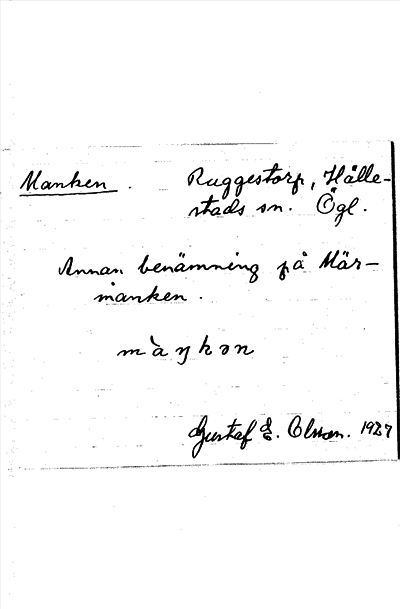 Manken. Ruggestorp, Hälle-
stads sn. Ögl.
Annan benämning på Mär-
manken.
màŋkən
Gustaf E. Olsson. 1927